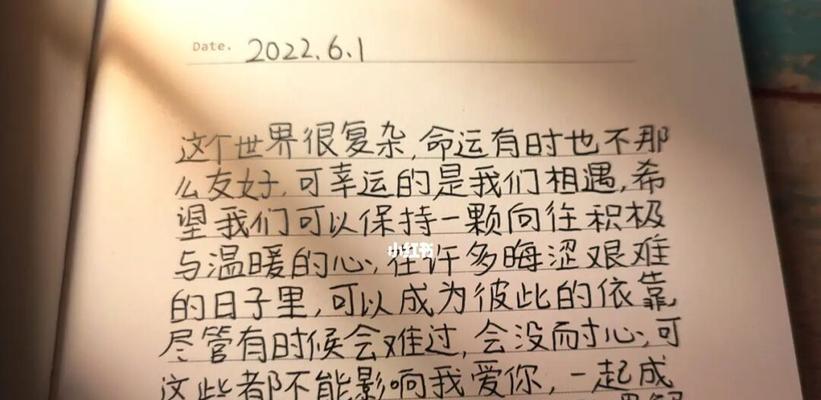 Date. 2022.6.1
这个世界很复杂,命运有时也不那
么友好,可幸运的是我们相遇,希
望我们可以保持一颗向往积极
与温暖的心,在许多晦涩艰难
小红书
的日子里,可以成为彼此的依靠
尽管有时候会难过,会没耐心,可
这些都不能影响我爱你,一起成